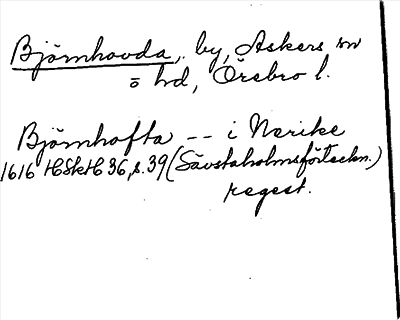 Björnhovda, by, Askers sn
o hd, Örebro l.
Björnhofta -- i Nerike
1616 HSkH 36, s. 39 (Sävstaholmsförteckn.)
regest.